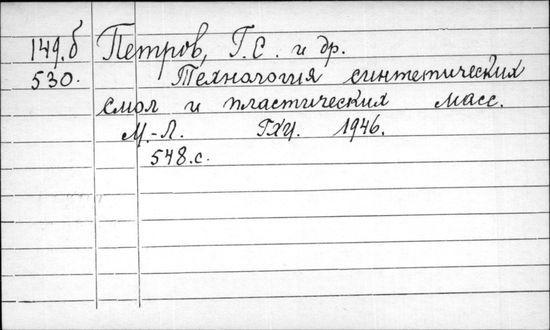 149.б Петров, Г.С. и др.
530. Технология синтетических
смол и пластических масс.
М.-Л. ГХИ. 1946.
548.с.